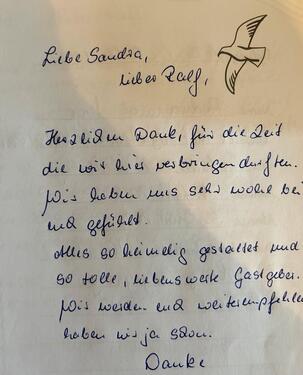 Liebe Sandra,
lieber Ralf,
Herzlichen Dank, für die Zeit
die wir hier verbringen durften.
Wir haben uns sehr wohl bei
und gefühlt.
Alles so heimelig gestaltet und
so tolle, liebenswerte Gastgeber.
Wir werden und weiterempfehlen
haben wir ja schon.
Danke